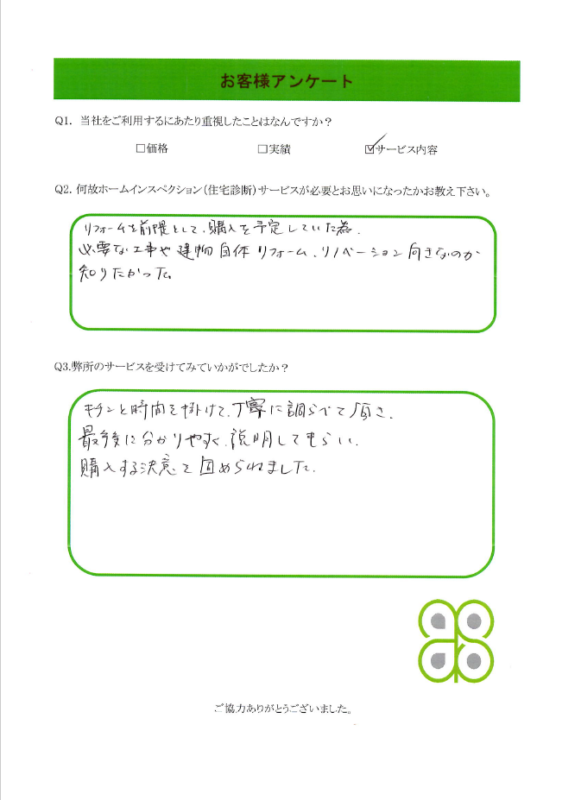 お客様アンケート
Q1. 当社をご利用するにあたり重視したことはなんですか？
□価格 □実績 ☑サービス内容
Q2. 何故ホームインスペクション（住宅診断）サービスが必要とお思いになったかお教え下さい。
リフォームを前提として、購入を予定していた為、
必要な工事や建物自体リフォーム、リノベーション向きなのか
知りたかった。
Q3.弊所のサービスを受けてみていかがでしたか？
キチンと時間を掛けて、丁寧に調らべて頂き、
最後に分かりやすく、説明してもらい、
購入する決意を固められました。
ご協力ありがとうございました。